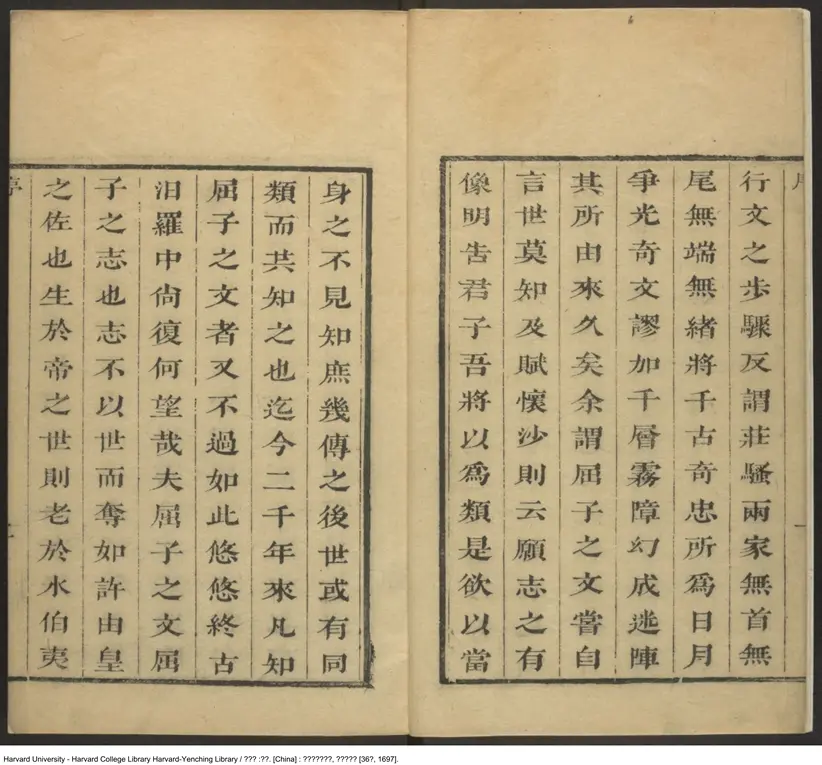 行文之步驟反謂莊騷兩家無首無
尾無端無緒將千古奇忠所為日月
爭光奇文謬加千層霧障幻成迷陣
其所由來久矣余謂屈子之文嘗自
言世莫知及賦懷沙則云願志之有
像明告君子吾將以為類是欲以當
身之不見知庶幾傳之後世或有同
類而共知之也迄今二千年來凡知
屈子之文者又不過如此悠悠終古
汨羅中尙復何望哉夫屈子之文屈
子之志也志不以世而奪如許由皇
之佐也生於帝之世則老於水伯夷
Harvard University - Harvard College Library Harvard-Yenching Library / ??? :??. [China] : ???????, ????? [36?, 1697].